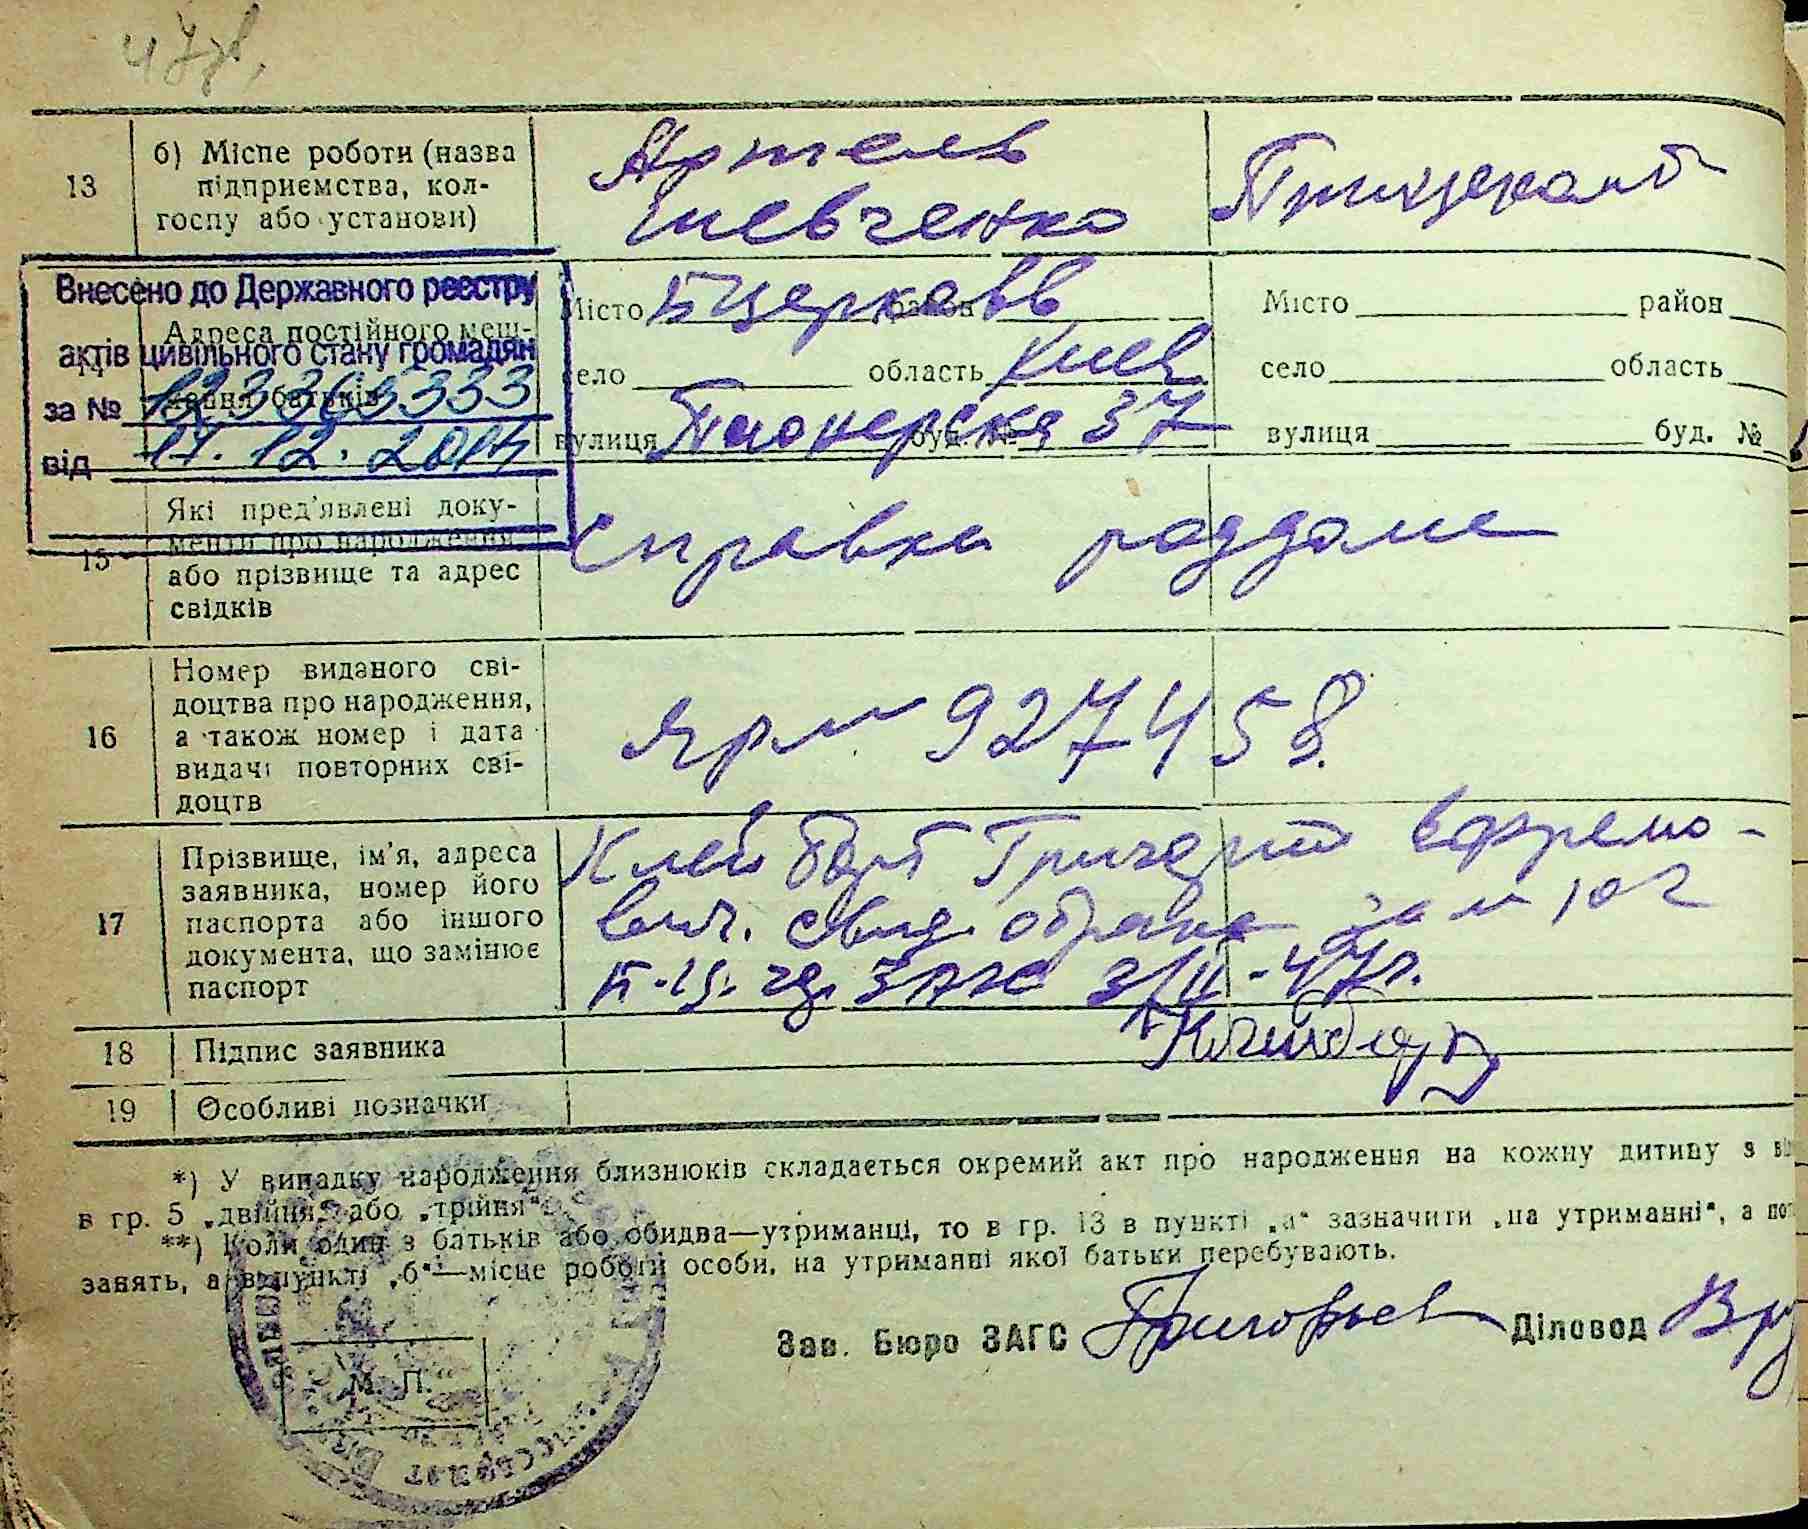 13
б) Місце роботи (назва
підприємства, кол-
госпу або установи)
Артель
Шевченко
Внесено до Державного реєстру
актів цивільного стану громадян
за №
від 17. 12. 2014
Адреса постійного меш-
кання батьків
Місто Б церковь район
село область Киев
вулиця Пионерская 37 буд. №
Місто район
село область
вулиця буд. №
15
Які пред'явлені доку-
менти про народження
або прізвище та адрес
свідків
Справка роддома
16
Номер виданого сві-
доцтва про народження,
а також номер і дата
видачі повторних сві-
доцтв
№ 927458
17
Прізвище, ім'я, адреса
заявника, номер його
паспорта або іншого
документа, що замінює
паспорт
Клейборт Григорий Ефремо-
вич. свид. о браке за №
ЗАГС 47 г.
18
Підпис заявника
19
Особливі позначки
*) У випадку народження близнюків складається окремий акт про народження на кожну дитину з
в гр. 5 „двійня“ або „трійня“.
**) Коли один з батьків або обидва—утриманці, то в гр. 13 в пункті „а“ зазначити „на утриманні“, а
занять, а в пункті „б“—місце роботи особи, на утриманні якої батьки перебувають.
М. П.
Зав. Бюро ЗАГС Григорьев Діловод